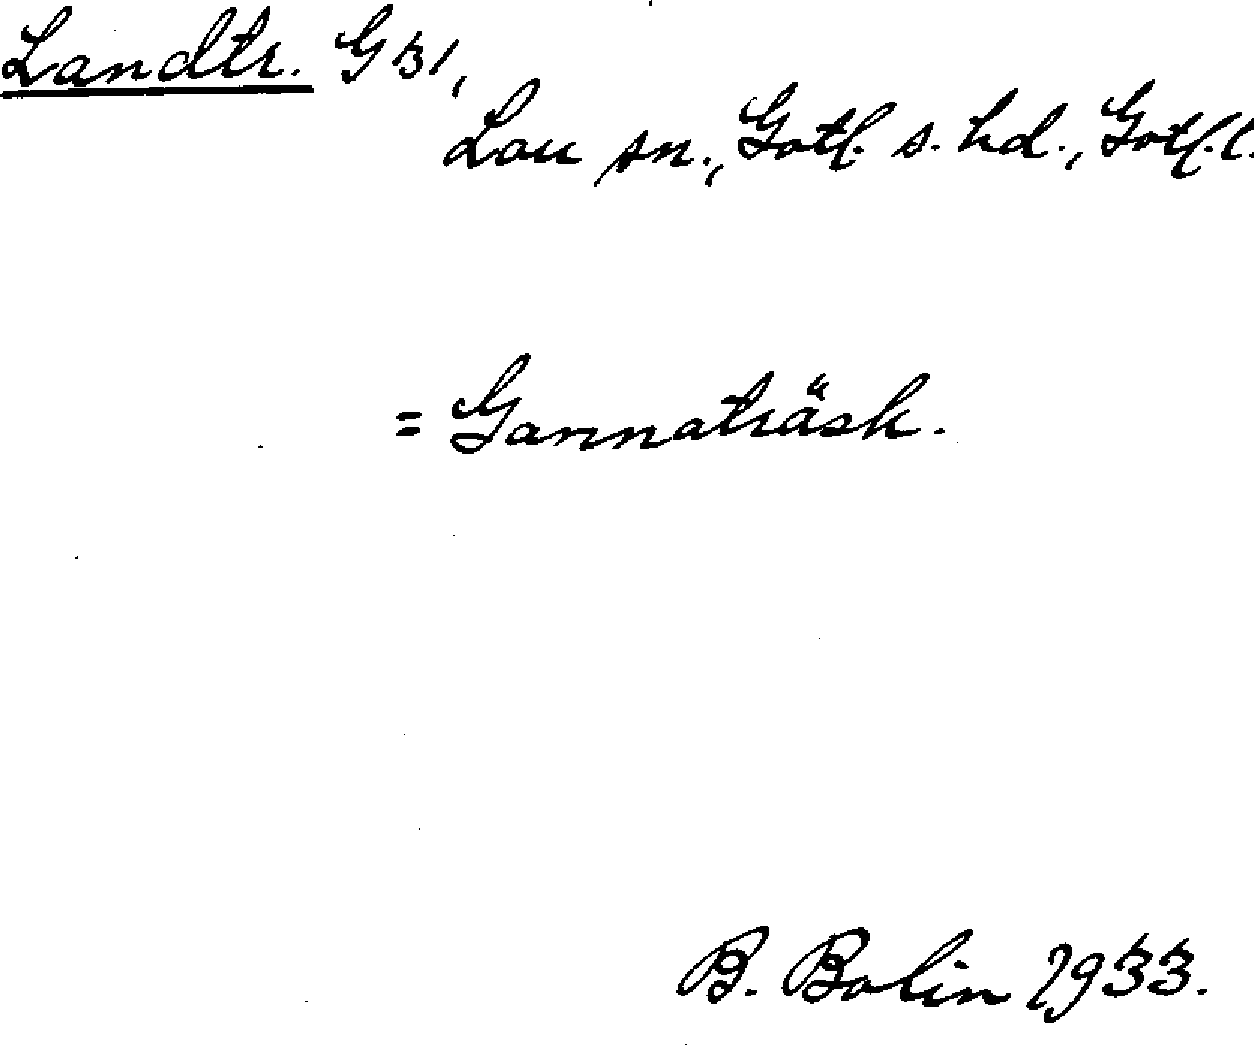 Landtr. G 31,
Lau sn., Gotl. s. hd., Gotl. l.
= Gannaträsk.
B. Bolin 1933.